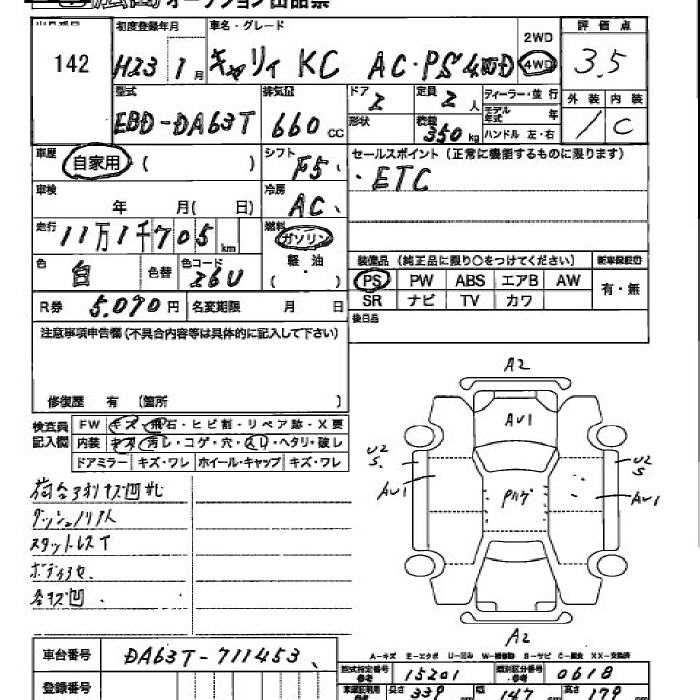 オークション出品票
142
初度登録年月 H23年 1月
車名・グレード キャリィ KC AC・PS 4WD
2WD
4WD
評価点 3.5
型式 EBD-DA63T
排気量 660 cc
ドア 2
定員 2人
ディーラー・並行
モデル年式 年
形状
積載 350 kg
ハンドル 左・右
外装 内装
C
車歴 自家用 ( )
シフト F5
セールスポイント(正常に機能するものに限ります)
・ETC
車検 年 月( 日)
冷房 AC
走行 11万1千705 km
燃料 ガソリン
軽・油
( )
色 白 色替 色コード 26U
装備品 (純正品に限り○をつけてください)
新車保証書
PS PW ABS エアB AW
有・無
SR ナビ TV カワ
R券 5,070円 名変期限 月 日
後日品
注意事項申告欄(不具合内容等は具体的に記入して下さい)
修復歴 有 (箇所 )
検査員記入欄
FW キズ・飛石・ヒビ割・リペア跡・X要
内装 キズ・汚レ・コゲ・穴・スレ・ヘタリ・破レ
ドアミラー キズ・ワレ ホイール・キャップ キズ・ワレ
荷台
スタットレス
各キズ凹
A2
AV1
U2
S
AV1
U2
S
AV1
A2
A-キズ E-エクボ U-凹み W-補修跡 S-サビ C-腐食 XX-交換済
車台番号 DA63T-711453
型式指定番号 15201
類別区分番号 0618
登録番号
長さ 339 幅 147 高さ 179